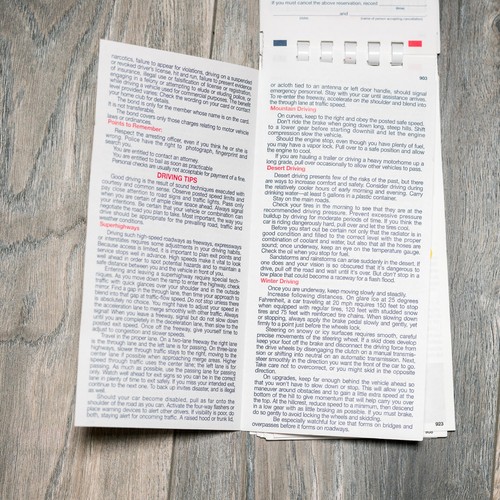 If you must cancel the above reservation, record
and
(date)
903
narcotics, failure to appear for violations, driving on a suspended
or revoked driver's license, hit and run, failure to present evidence
of insurance, illegal use or falsification of license or registration,
engaging in a felony or attempting to elude or eluding police, or
while driving a vehicle used for commercial purposes. The benefit
level provided varies. Check the wording on your card or contact
your home club for details.
The bond is only for the member whose name is on the card.
It is not transferable.
The bond covers only those charges relating to motor vehicle
laws or ordinances.
Points to Remember:
Respect the arresting officer, even if you think he or she is
wrong. Police have the right to photograph, fingerprint and
search you.
You are entitled to contact an attorney.
You are entitled to bail as soon as practicable.
Personal checks are usually not acceptable for payment of a fine.
DRIVING TIPS
Good driving is the result of sound techniques executed with
courtesy and common sense. Observe posted speed limits and
pay close attention to road signs and traffic flow. Pass only
when you are certain of ample clear road ahead. Always signal
your intentions. Be certain that your vehicle or combination can
negotiate the route you plan to take. Most important, the way you
drive should be appropriate for the prevailing road, traffic and
weather conditions.
Superhighways
Driving such high-speed roadways as freeways, expressways
or interstates requires some adjustments in your driving habits.
Because access is limited, it is important to plan exit points and
service stops well in advance. High speeds make it vital to look
well ahead and adjust your speed to traffic flow and to maintain a
safe distance between you and the vehicle in front of you.
Entering and leaving a superhighway require special tech-
niques. As you move down the ramp to enter the highway, check
traffic with quick glances over your shoulder and in the outside
mirror. Find a gap in the through lane, then try your approach to
blend into that gap at traffic-flow speed. Do not stop unless there
is absolutely no choice. You might have to adjust your speed in
the acceleration lane to merge smoothly with other traffic. Always
signal! When you leave a freeway, signal but do not slow down
until you are completely in the deceleration lane, then slow to the
posted exit speed. Once off the freeway, give yourself time to
adjust to congestion and slower speeds.
Drive in the proper lane. On a two-lane freeway the right lane
is the through lane and the left lane is for passing. On three-lane
highways, slower through traffic stays to the right, moving to the
center lane if possible when approaching merge areas. Higher
speed through traffic stays in the center lane; the left lane is for
passing. As much as possible, use the passing lane for passing
only. Watch well ahead for exit signs so you can be in the correct
lane in plenty of time to exit safely. If you miss your intended exit,
continue to the next one. To back up invites disaster, and is illegal
as well.
Should your car become disabled, pull as far onto the
shoulder of the road as you can. Activate the four-way flashers or
place warning devices to alert other drivers. If visibility is poor, do
both, staying alert for oncoming traffic. A raised hood or trunk lid,
or a cloth tied to an antenna or left door handle, should signal
emergency personnel. Stay with your car until assistance arrives.
To re-enter the freeway, accelerate on the shoulder and blend into
the through lane at traffic speed.
Mountain Driving
On curves, keep to the right and obey the posted safe speed.
Don't ride the brake when going down long, steep hills. Shift
to a lower gear before starting downhill and let the engine
compression slow the vehicle.
Should the engine stop, even though you have plenty of fuel,
you may have a vapor lock. Pull over to a safe position and allow
the engine to cool.
If you are hauling a trailer or driving a heavy motorhome up a
long grade, pull over occasionally to allow other vehicles to pass.
Desert Driving
Desert driving presents few of the risks of the past, but there
are ways to increase comfort and safety. Consider driving during
the relatively cooler hours of early morning and evening. Carry
drinking water—at least 5 gallons in a plastic container.
Stay on the main roads.
Check your tires in the morning to see that they are at the
recommended driving pressure. Prevent excessive pressure
buildup by driving for moderate periods of time. If you think the
car is riding dangerously hard, pull over and let the tires cool.
Before you start out be certain not only that the radiator is in
good condition and filled to the correct level with the proper
combination of coolant and water, but also that all the hoses are
sound; once underway, keep an eye on the temperature gauge.
Check the oil when you stop for fuel.
Sandstorms and rainstorms can arise suddenly in the desert. If
one does and your vision is so obscured that it's dangerous to
drive, pull off the road and wait until it's over. But don't stop in a
low place that could become a raceway for a flash flood.
Winter Driving
Once you are underway, keep moving slowly and steadily.
Increase following distances. On glare ice at 25 degrees
Fahrenheit, a car traveling at 20 mph requires 160 feet to stop
when equipped with regular tires, 120 feet with studded snow
tires and 75 feet with reinforced tire chains. When slowing down
or stopping, always apply the brake pedal slowly and gently, yet
firmly to a point just before the wheels lock.
Steering on snowy or icy surfaces requires smooth, careful
precise movements of the steering wheel. If a skid does develop
keep your foot off the brake and disconnect the driving force from
the drive wheels by disengaging the clutch on a manual transmis-
sion or shifting into neutral on an automatic transmission. Next,
steer smoothly in the direction you want the front of the car to go.
Take care not to overcorrect, or you might skid in the opposite
direction.
On upgrades, keep far enough behind the vehicle ahead so
that you won't have to slow down or stop. This will allow you to
maneuver around obstacles and to gain a little extra speed at the
bottom of the hill to give momentum that will help carry you over
the top. At the hillcrest, reduce speed to a minimum, then descend
in a low gear with as little braking as possible. If you must brake,
do so gently to avoid locking the wheels and skidding.
Be especially watchful for ice that forms on bridges and
overpasses before it forms on roadways.
923